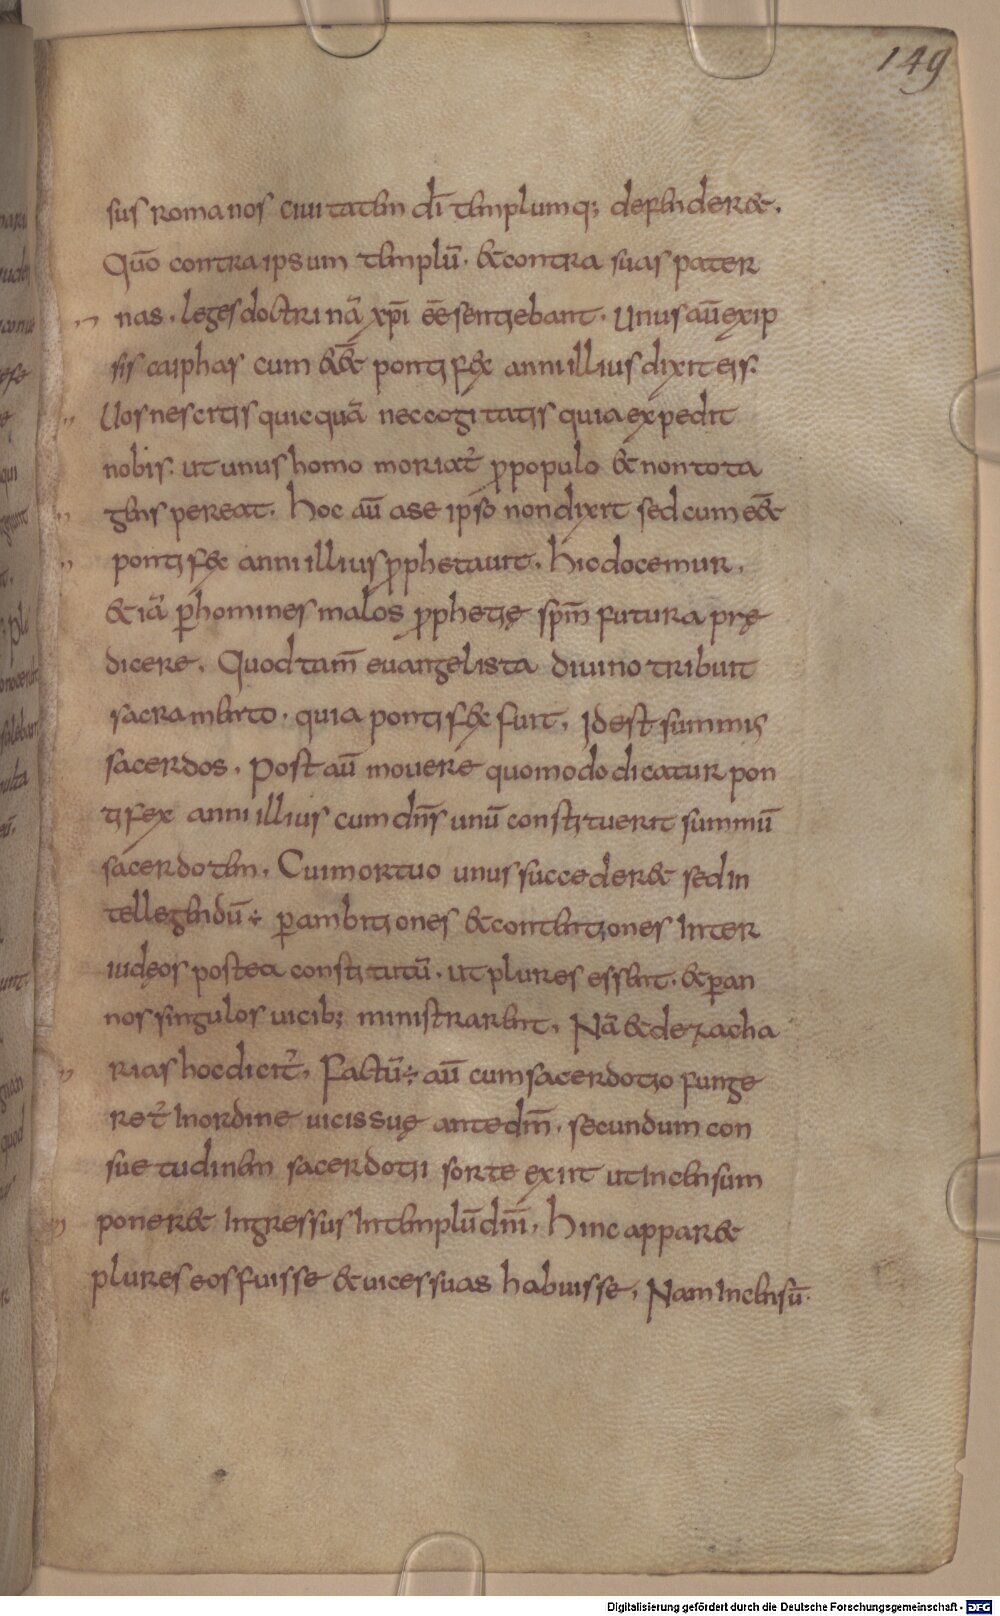 149
sus romanos ciuitatem dī templumq; defender&.
Quō contra ipsum templū. & contra suas pater
nas. leges doctrinā xp̄i ēē sentiebant. Unus aū exip
sis caiphas cum ēē& pontifex anni illius dixit eis.
Uos nescitis quicquā nec cogitatis quia expedit
nobis. ut unus homo moriat̄ ꝓ populo & non tota
gens pereat. hoc aū ase ipso non dixit sed cum ēē&
pontifex anni illius ꝓphetauit. hic docemur.
&iā ꝑ homines malos ꝓphetię sp̄m futura prę
dicere. Quod tam̄ euangelista diuino tribuit
sacramento. quia pontifex fuit. Id est summus
sacerdos. Post aū mouere quomodo dicatur pon
tifex anni illius cum dn̄s unū constituerit summū
sacerdotem. Cui mortuo unus succeder& sed in
tellegendū ÷ ꝑ ambitiones & contentiones inter
iudęos postea constitutū. ut plures essent. & ꝑ an
nos singulos uicib; ministrarent. Nā & de zacha
rias hoc dicit̄. Factū ÷ aū cum sacerdotio funge
ret̄ in ordine uicis suę ante dm̄. secundum con
suetudinem sacerdotii sorte exiit ut incensum
poner& ingressus in templū dn̄i. Hinc appar&
plures eos fuisse & uices suas habuisse. Nam incensū
Digitalisierung gefördert durch die Deutsche Forschungsgemeinschaft - DFG